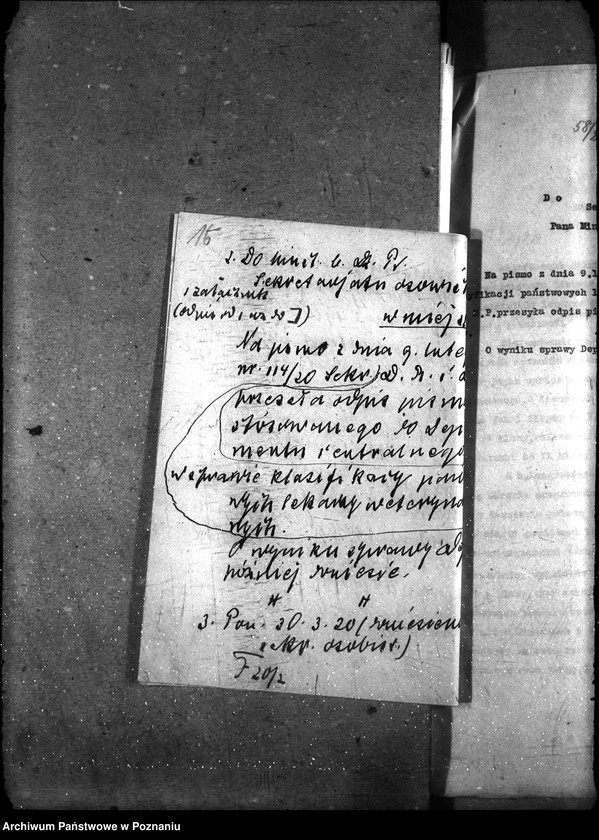 15
2. Do Minist. b. Dz. Pr.
Sekretarjatu osowie
1 załącznik
(odpis
w miejs
Na pismo z dnia 9. lute
nr. 114/20 Sekr. D. R. i. a
przesyła odpis pisma
stosowanego do Dep
mentu Centralnego
w sprawie klasyfikacji pań
wych lekarzy weteryna
nych.
O wyniku sprawy De
później doniesie.
3. Pon. 30. 3. 20 (
sekr. osobist.)
F 20/2
58/2
Do
Se
Pana Min
Na pismo z dnia 9.1
fikacji państwowych l
.P.przesyła odpis pi
O wyniku sprawy Dep
Archiwum Państwowe w Poznaniu